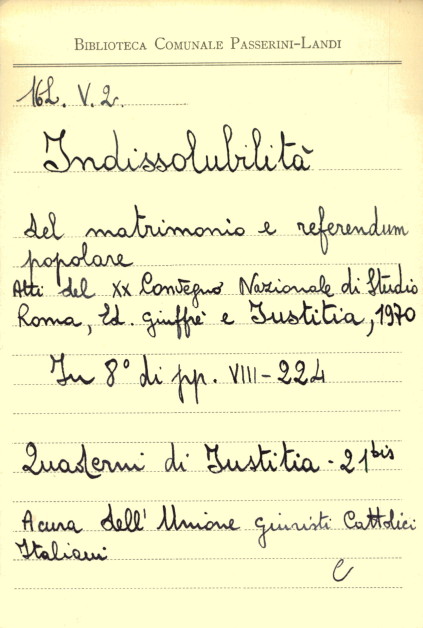 BIBLIOTECA COMUNALE PASSERINI-LANDI
16L. V. 2.
Indissolubilità
del matrimonio e referendum
popolare
Atti del XX Convegno Nazionale di Studio
Roma, Ed. Giuffrè e Iustitia, 1970
In 8° di pp. VIII-224
Quaderni di Iustitia - 21 bis
A cura dell' Unione Giuristi Cattolici
Italiani
C